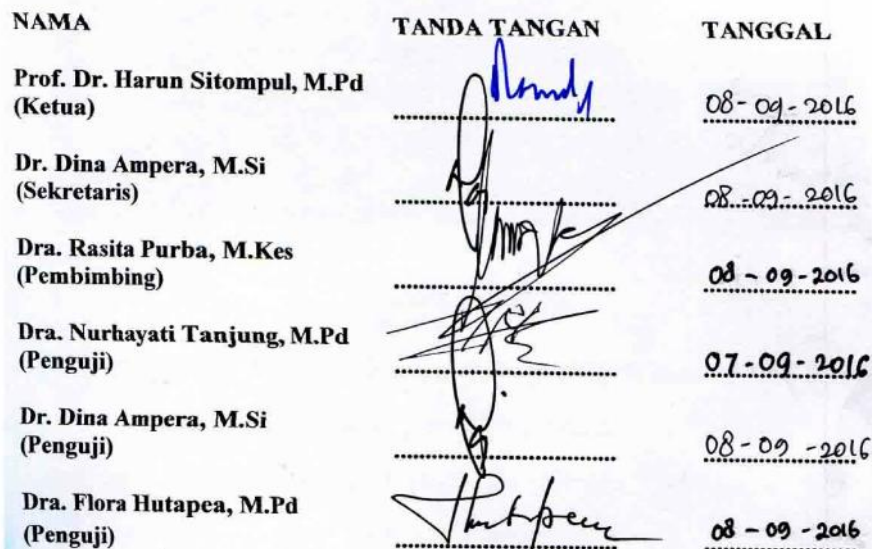 NAMA TANDA TANGAN TANGGAL
Prof. Dr. Harun Sitompul, M.Pd
(Ketua) 08-09-2016
Dr. Dina Ampera, M.Si
(Sekretaris) 08-09-2016
Dra. Rasita Purba, M.Kes
(Pembimbing) 08-09-2016
Dra. Nurhayati Tanjung, M.Pd
(Penguji) 07-09-2016
Dr. Dina Ampera, M.Si
(Penguji) 08-09-2016
Dra. Flora Hutapea, M.Pd
(Penguji) 08-09-2016